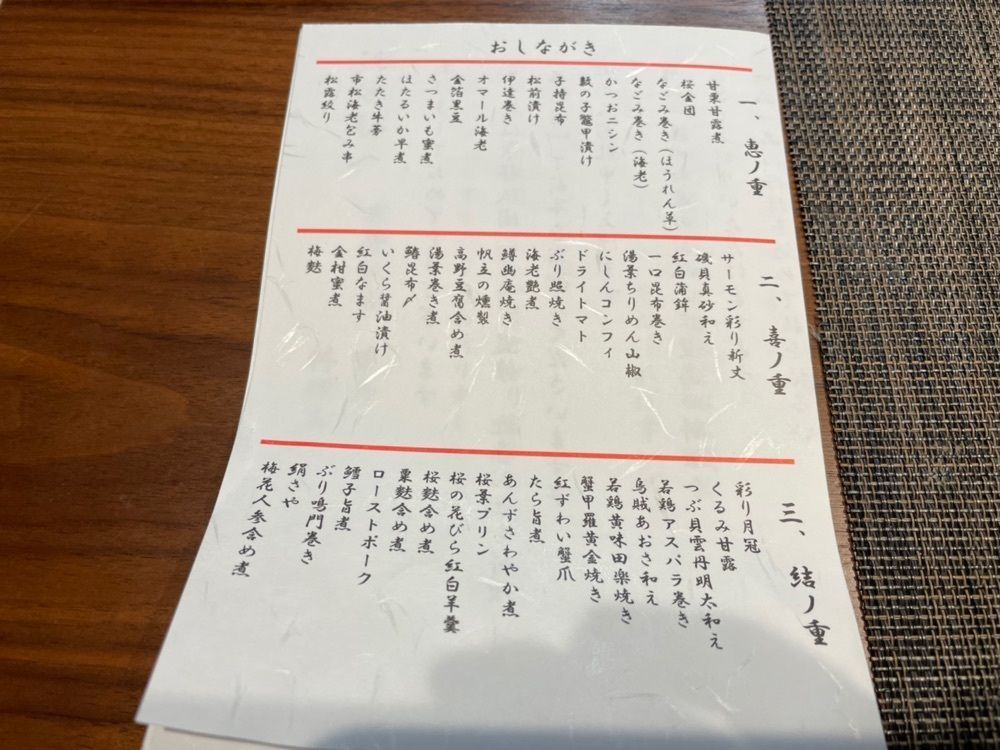 おしながき
一、恵ノ重
甘栗甘露煮
桜金団
なごみ巻き(ほうれん草)
なごみ巻き(海老)
かつおニシン
数の子鼈甲漬け
子持昆布
松前漬け
伊達巻き
オマール海老
金箔黒豆
さつまいも蜜煮
ほたるいか旱煮
たたき牛蒡
市松海老包み串
松露絞り
二、喜ノ重
サーモン彩り新丈
磯貝真砂和え
紅白蒲鉾
一口昆布巻き
湯葉ちりめん山椒
にしんコンフィ
ドライトマト
ぶり照焼き
海老艶煮
鱒幽庵焼き
帆立の燻製
高野豆腐含め煮
湯葉巻き煮
鰆昆布〆
いくら醤油漬け
紅白なます
金柑蜜煮
梅麩
三、結ノ重
彩り月冠
くるみ甘露
つぶ貝雲丹明太和え
若鶏アスパラ巻き
烏賊あおさ和え
若鶏黄味田楽焼き
蟹甲羅黄金焼き
紅ずわい蟹爪
たら旨煮
あんずさわやか煮
桜景プリン
桜の花びら紅白羊羹
桜麩含め煮
粟麩含め煮
ローストポーク
鱈子旨煮
ぶり鳴門巻き
絹さや
梅花人参含め煮